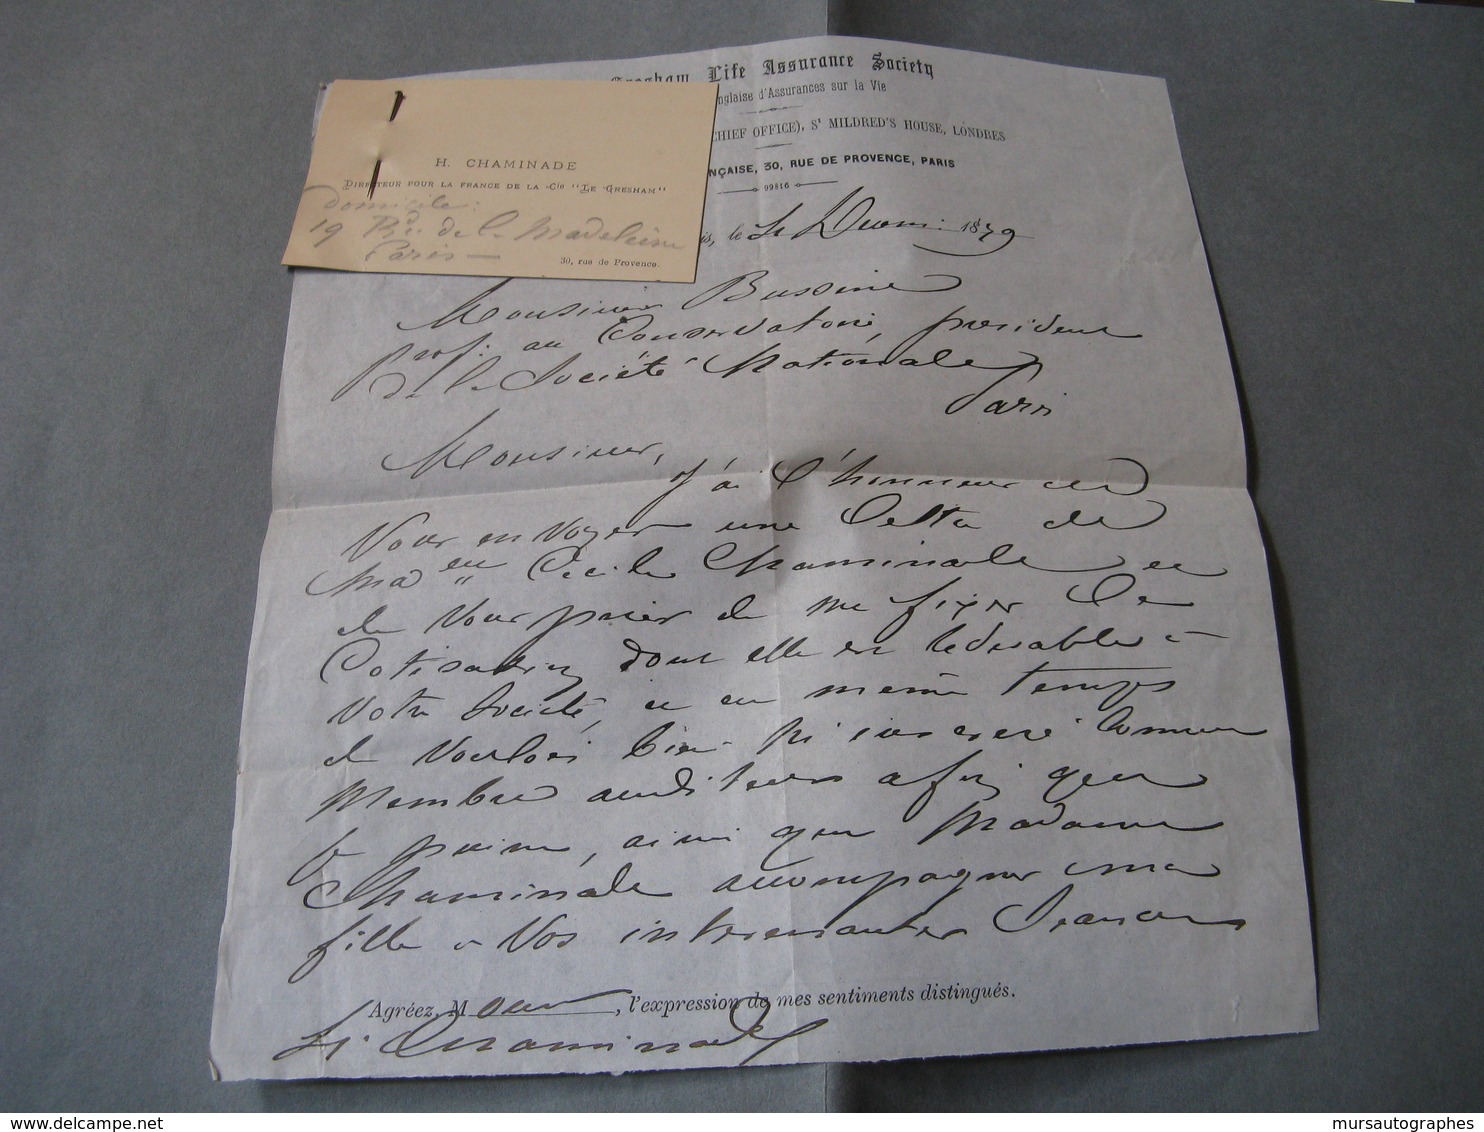 Gresham Life Assurance Society
nglaise d'Assurances sur la Vie
CHIEF OFFICE), St MILDRED'S HOUSE, LONDRES
NÇAISE, 30, RUE DE PROVENCE, PARIS
99816
H. CHAMINADE
DIRECTEUR POUR LA FRANCE DE LA Cie "LE GRESHAM"
Domicile:
19 Bd de la Madeleine
Paris
30, rue de Provence.
is, le 1879
Monsieur Bussine
Prof: au Conservatoire, president
de la "Société Nationale
Paris
Monsieur,
J'ai l'honneur de
vous envoyer une lettre de
Mad elle Cécile Chaminade et
de vous prier de me fixer la
Cotisation dont elle est redevable à
votre Société, et en même temps
de vouloir bien m'inscrire comme
Membre auditeur afin que
je puisse, ainsi que Madame
Chaminade accompagner ma
fille à vos interessantes Seances
Agréez, M onsieur, l'expression de mes sentiments distingués.
H. Chaminade
mursautographes